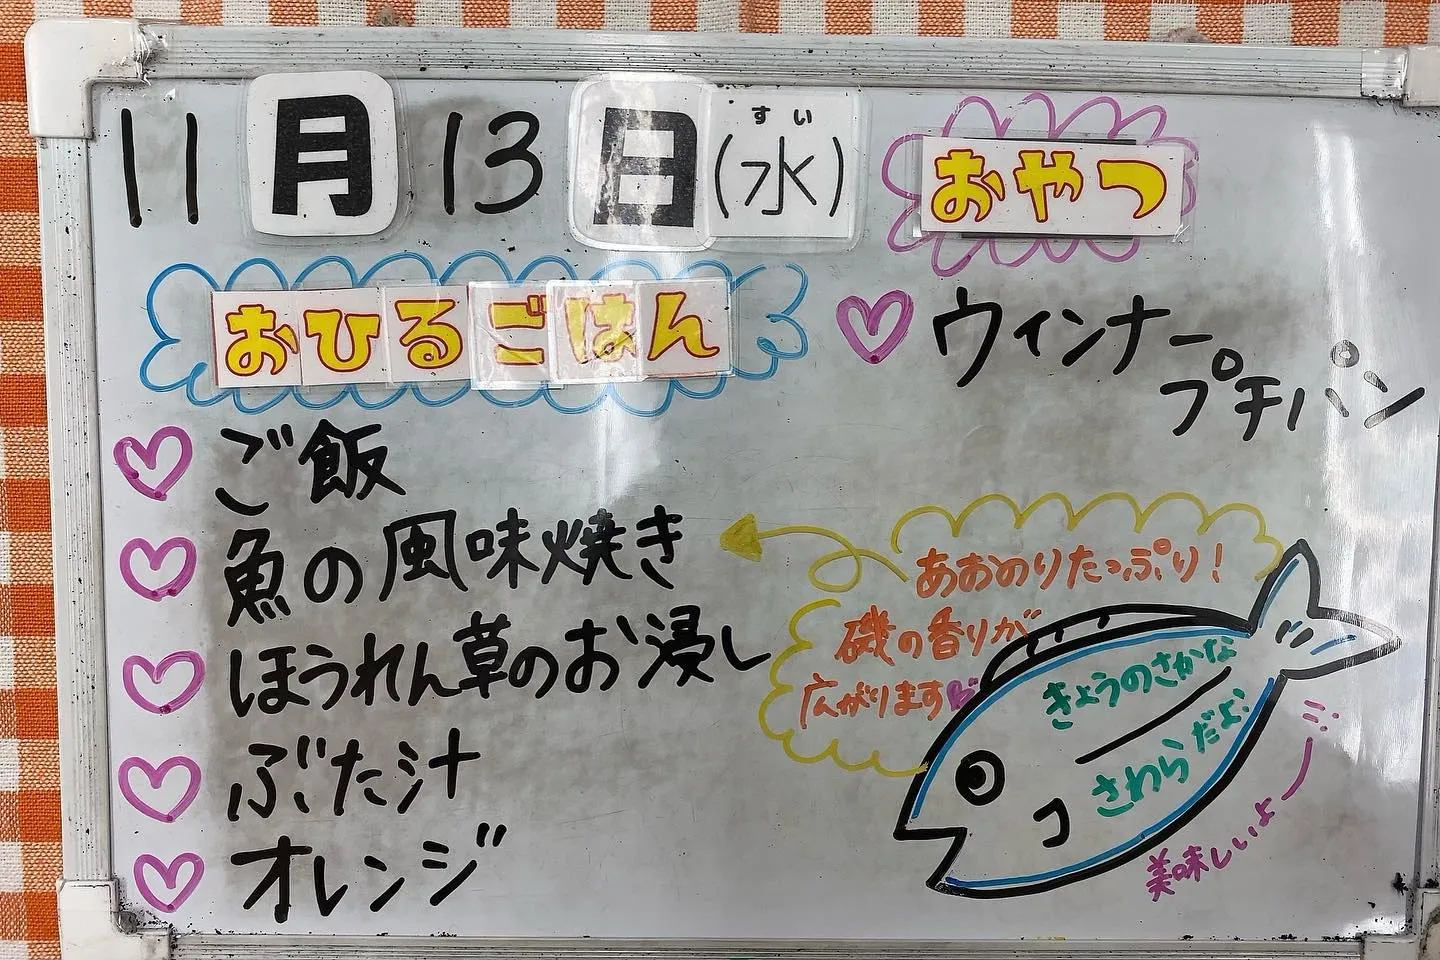 11月13日(水)
すい
おやつ
ウィンナー
プチパン
おひるごはん
ご飯
魚の風味焼き
ほうれん草のお浸し
ぶた汁
オレンジ
あおのりたっぷり!
磯の香りが
広がります
きょうのさかな
さわらだよ!
美味しいよー